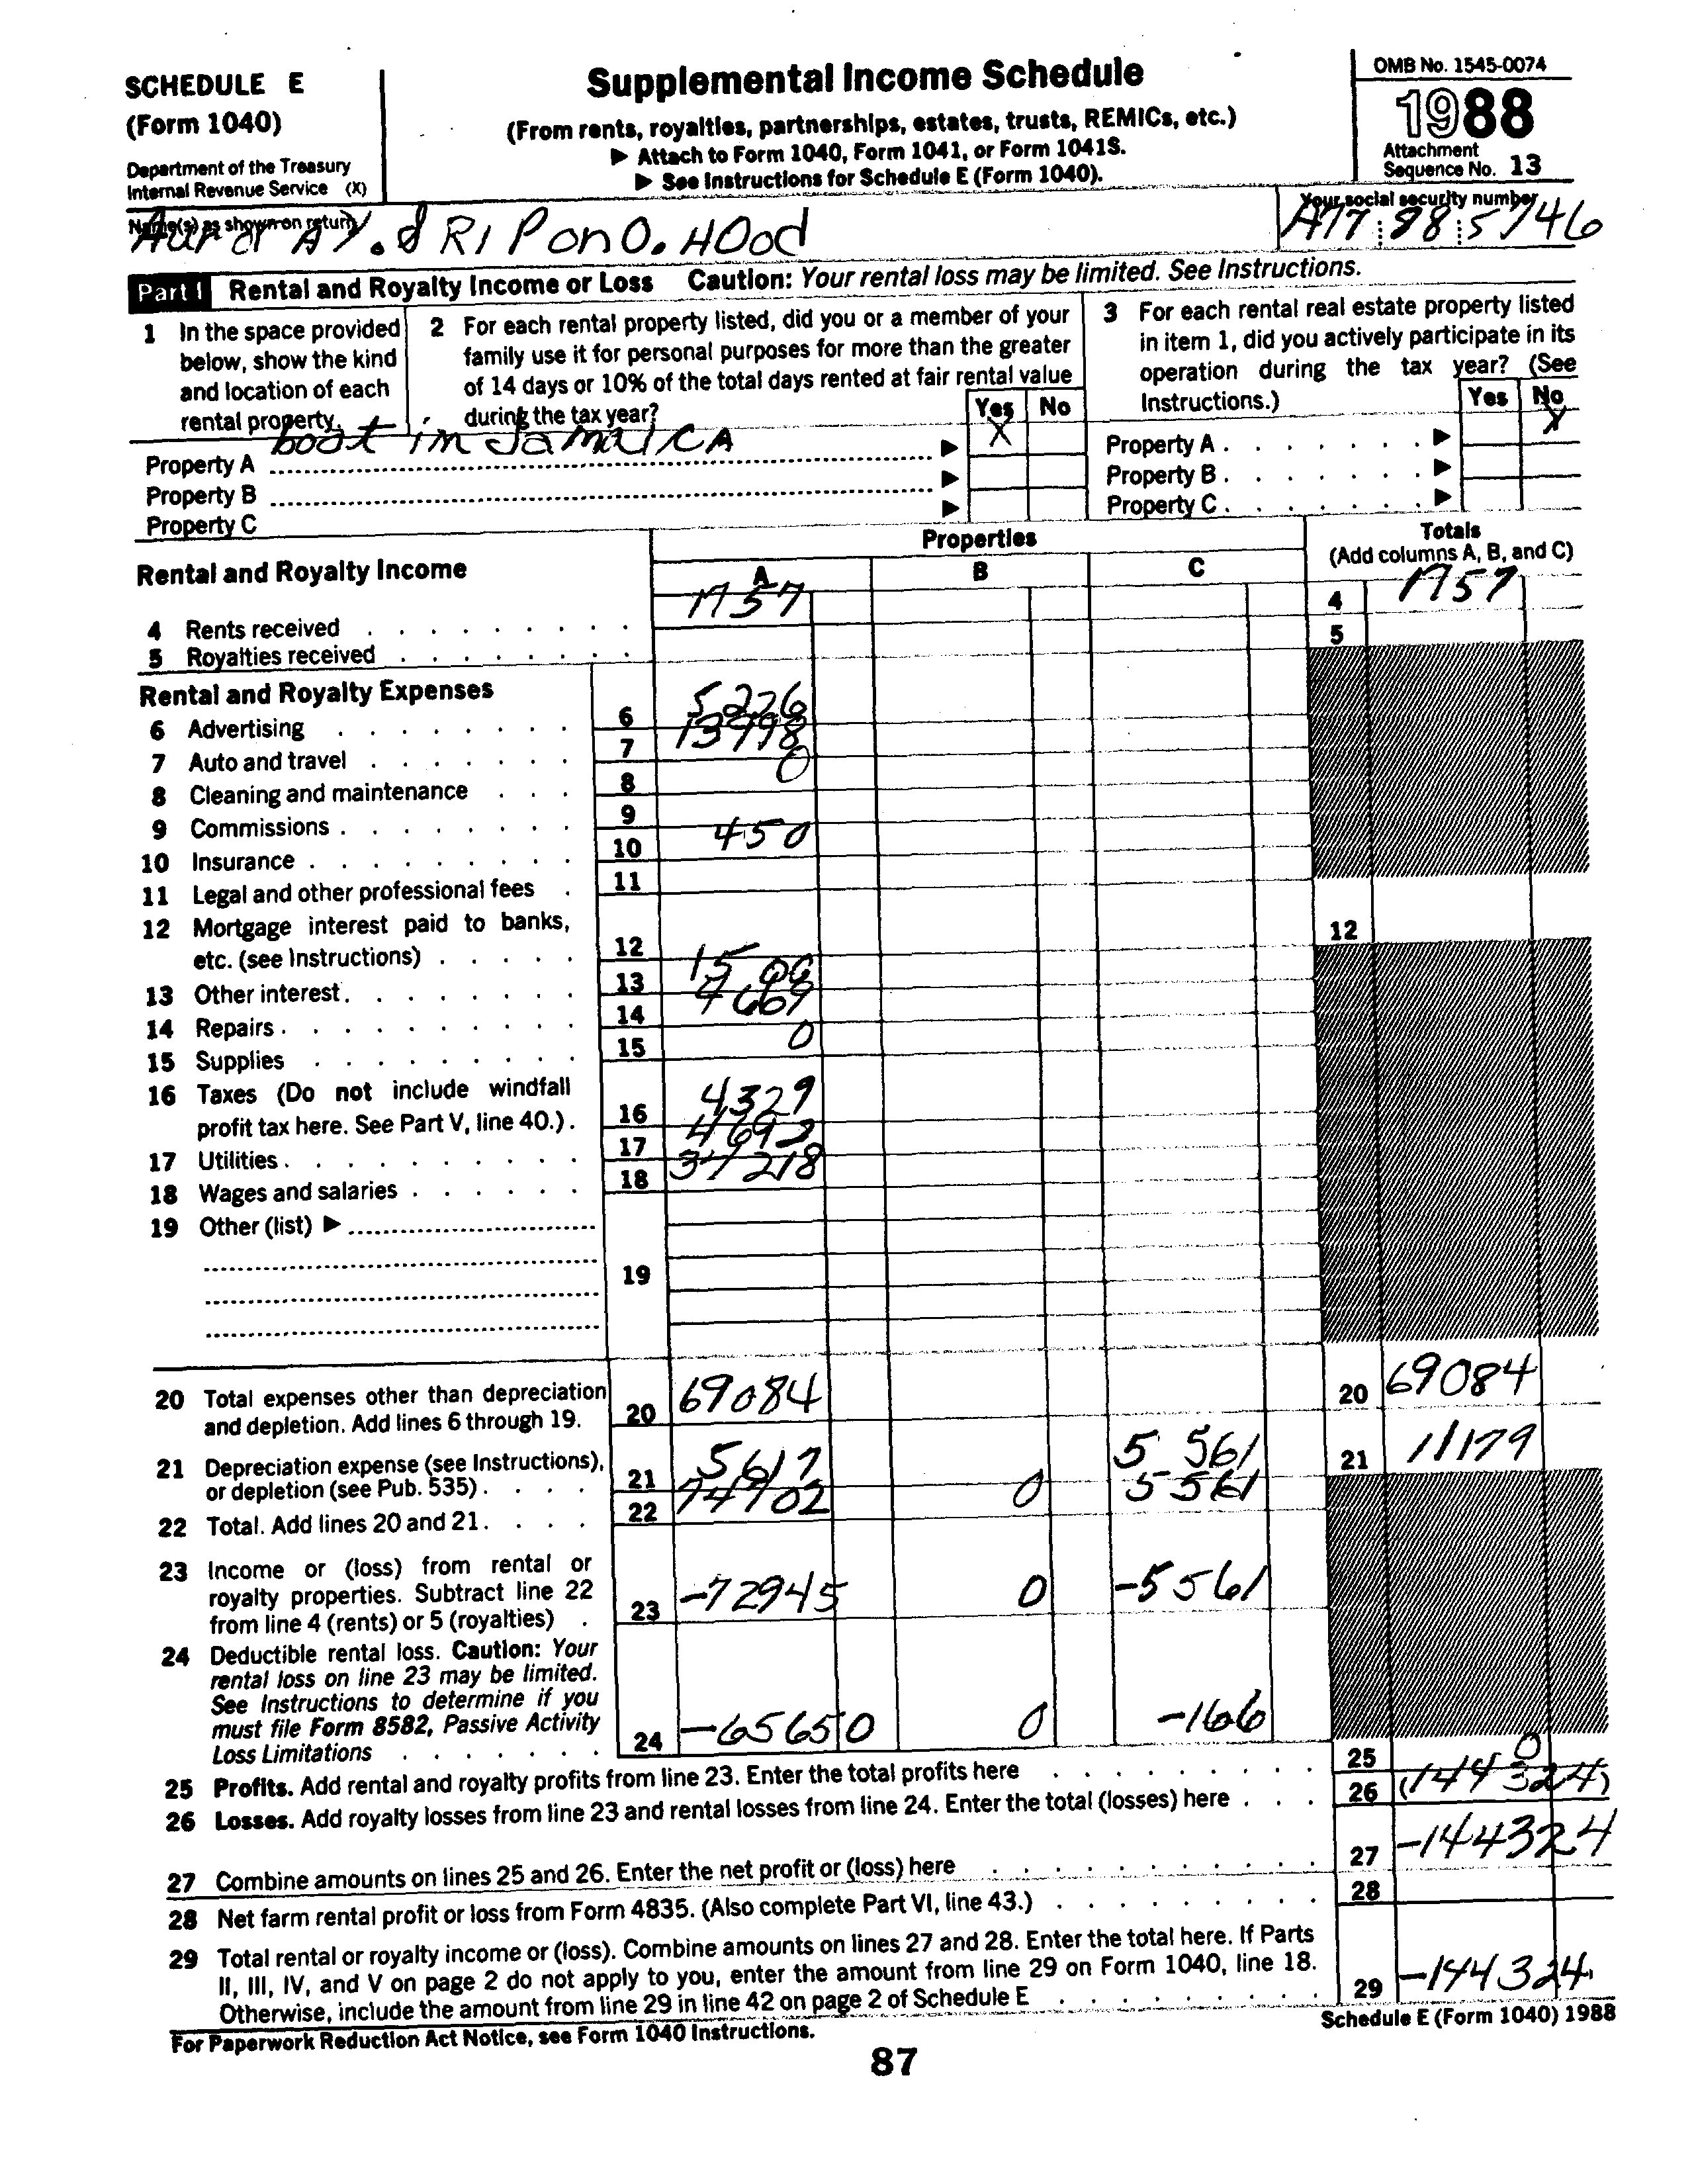 SCHEDULE E
(Form 1040)
Department of the Treasury
Internal Revenue Service (X)
Supplemental Income Schedule
(From rents, royalties, partnerships, estates, trusts, REMICs, etc.)
▶ Attach to Form 1040, Form 1041, or Form 1041S.
▶ See Instructions for Schedule E (Form 1040).
OMB No. 1545-0074
1988
Attachment
Sequence No. 13
Name(s) as shown on return
Auror A Y. & RIPON O. HOod
Your social security number
A77 98 5746
Part I Rental and Royalty Income or Loss Caution: Your rental loss may be limited. See Instructions.
1 In the space provided
below, show the kind
and location of each
rental property.
2 For each rental property listed, did you or a member of your
family use it for personal purposes for more than the greater
of 14 days or 10% of the total days rented at fair rental value
during the tax year?
Yes No
3 For each rental real estate property listed
in item 1, did you actively participate in its
operation during the tax year? (See
Instructions.)
Yes No
Property A boat in JamaiCA ▶ X
Property B ▶
Property C ▶
Property A ▶ X
Property B ▶
Property C ▶
Rental and Royalty Income
Properties
A B C
Totals
(Add columns A, B, and C)
4 Rents received 1757 4 1757
5 Royalties received 5
Rental and Royalty Expenses
6 Advertising 6 5226
7 Auto and travel 7 13998
8 Cleaning and maintenance 8 0
9 Commissions 9
10 Insurance 10 450
11 Legal and other professional fees 11
12 Mortgage interest paid to banks,
etc. (see Instructions) 12 12
13 Other interest 13
14 Repairs 14
15 Supplies 15 0
16 Taxes (Do not include windfall
profit tax here. See Part V, line 40.) 16 4329
17 Utilities 17 4692
18 Wages and salaries 18 37218
19 Other (list) ▶
19
20 Total expenses other than depreciation
and depletion. Add lines 6 through 19. 20 69084 20 69084
21 Depreciation expense (see Instructions),
or depletion (see Pub. 535) 21 5617 5 561 21 11179
22 Total. Add lines 20 and 21 22 74702 0 5561
23 Income or (loss) from rental or
royalty properties. Subtract line 22
from line 4 (rents) or 5 (royalties) 23 -72945 0 -5561
24 Deductible rental loss. Caution: Your
rental loss on line 23 may be limited.
See Instructions to determine if you
must file Form 8582, Passive Activity
Loss Limitations 24 -65650 0 -166
25 Profits. Add rental and royalty profits from line 23. Enter the total profits here 25 0
26 Losses. Add royalty losses from line 23 and rental losses from line 24. Enter the total (losses) here 26 (144324)
27 Combine amounts on lines 25 and 26. Enter the net profit or (loss) here 27 -144324
28 Net farm rental profit or loss from Form 4835. (Also complete Part VI, line 43.) 28
29 Total rental or royalty income or (loss). Combine amounts on lines 27 and 28. Enter the total here. If Parts
II, III, IV, and V on page 2 do not apply to you, enter the amount from line 29 on Form 1040, line 18.
Otherwise, include the amount from line 29 in line 42 on page 2 of Schedule E 29 -144324
For Paperwork Reduction Act Notice, see Form 1040 Instructions.
Schedule E (Form 1040) 1988
87